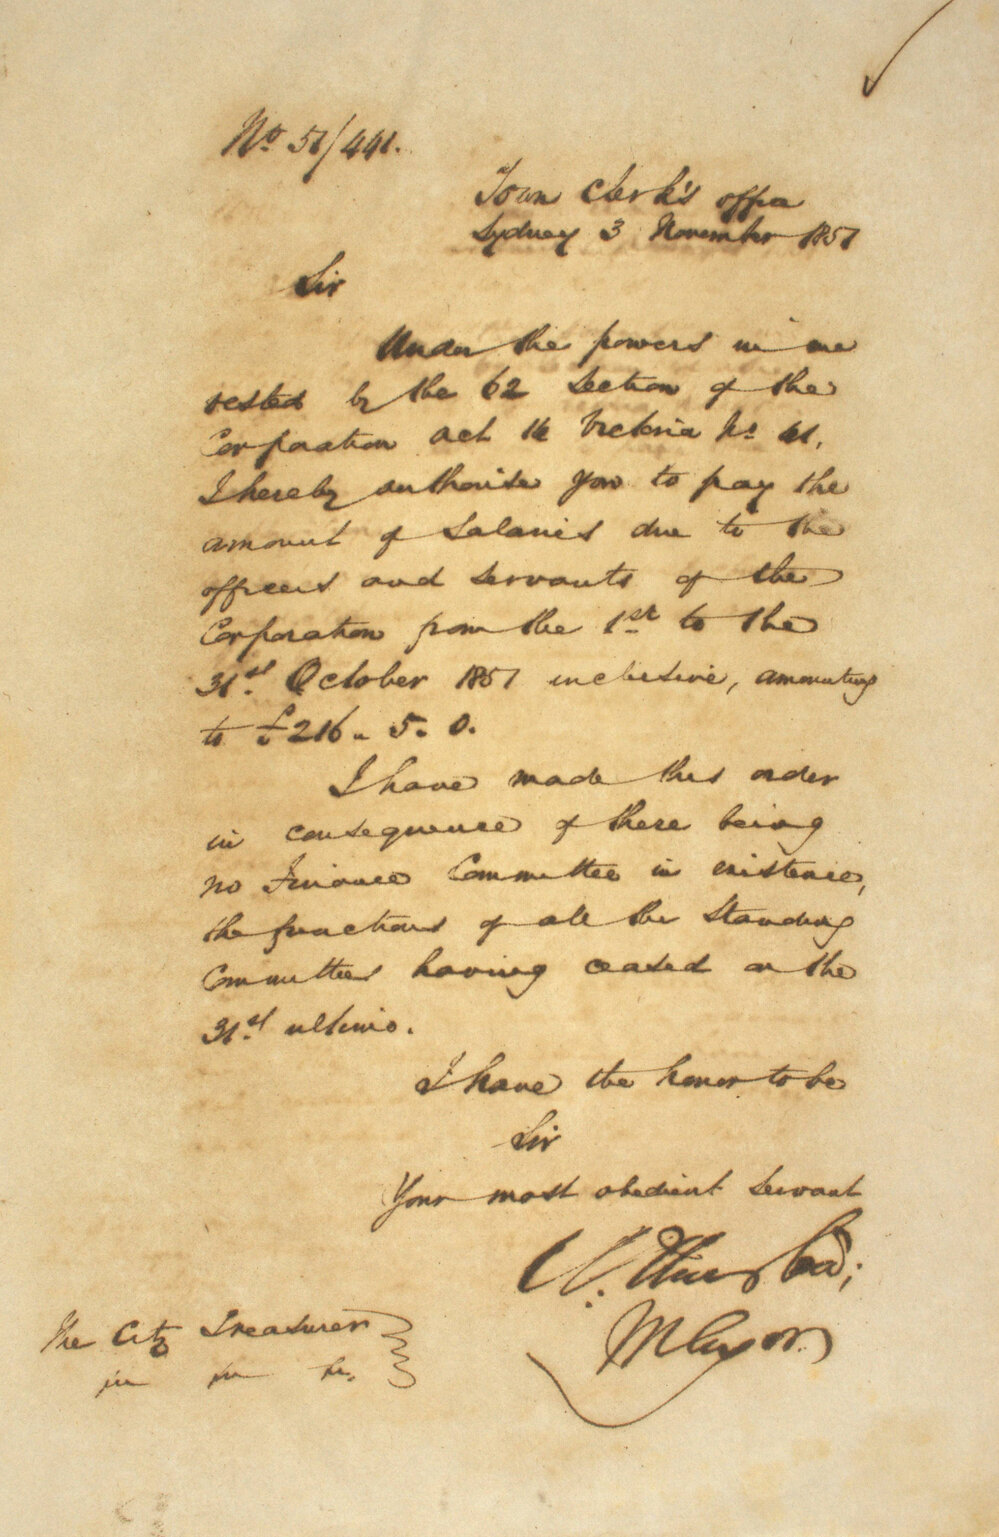 No. 51/441.
Town Clerk's office
Sydney 3 November 1851
Sir
Under the powers in me
vested by the 62 Section of the
Corporation act 14 Victoria No 41,
I hereby authorise you to pay the
amount of Salaries due to the
officers and servants of the
Corporation from the 1st to the
31st. October 1851 inclusive, amounting
to £216. 5. 0.
I have made this order
in consequence of there being
no Finance Committee in existence,
the functions of all the Standing
Committees having ceased on the
31st. ultimo.
I have the honor to be
Sir
Your most obedient Servant
Mayor.
The City Treasurer